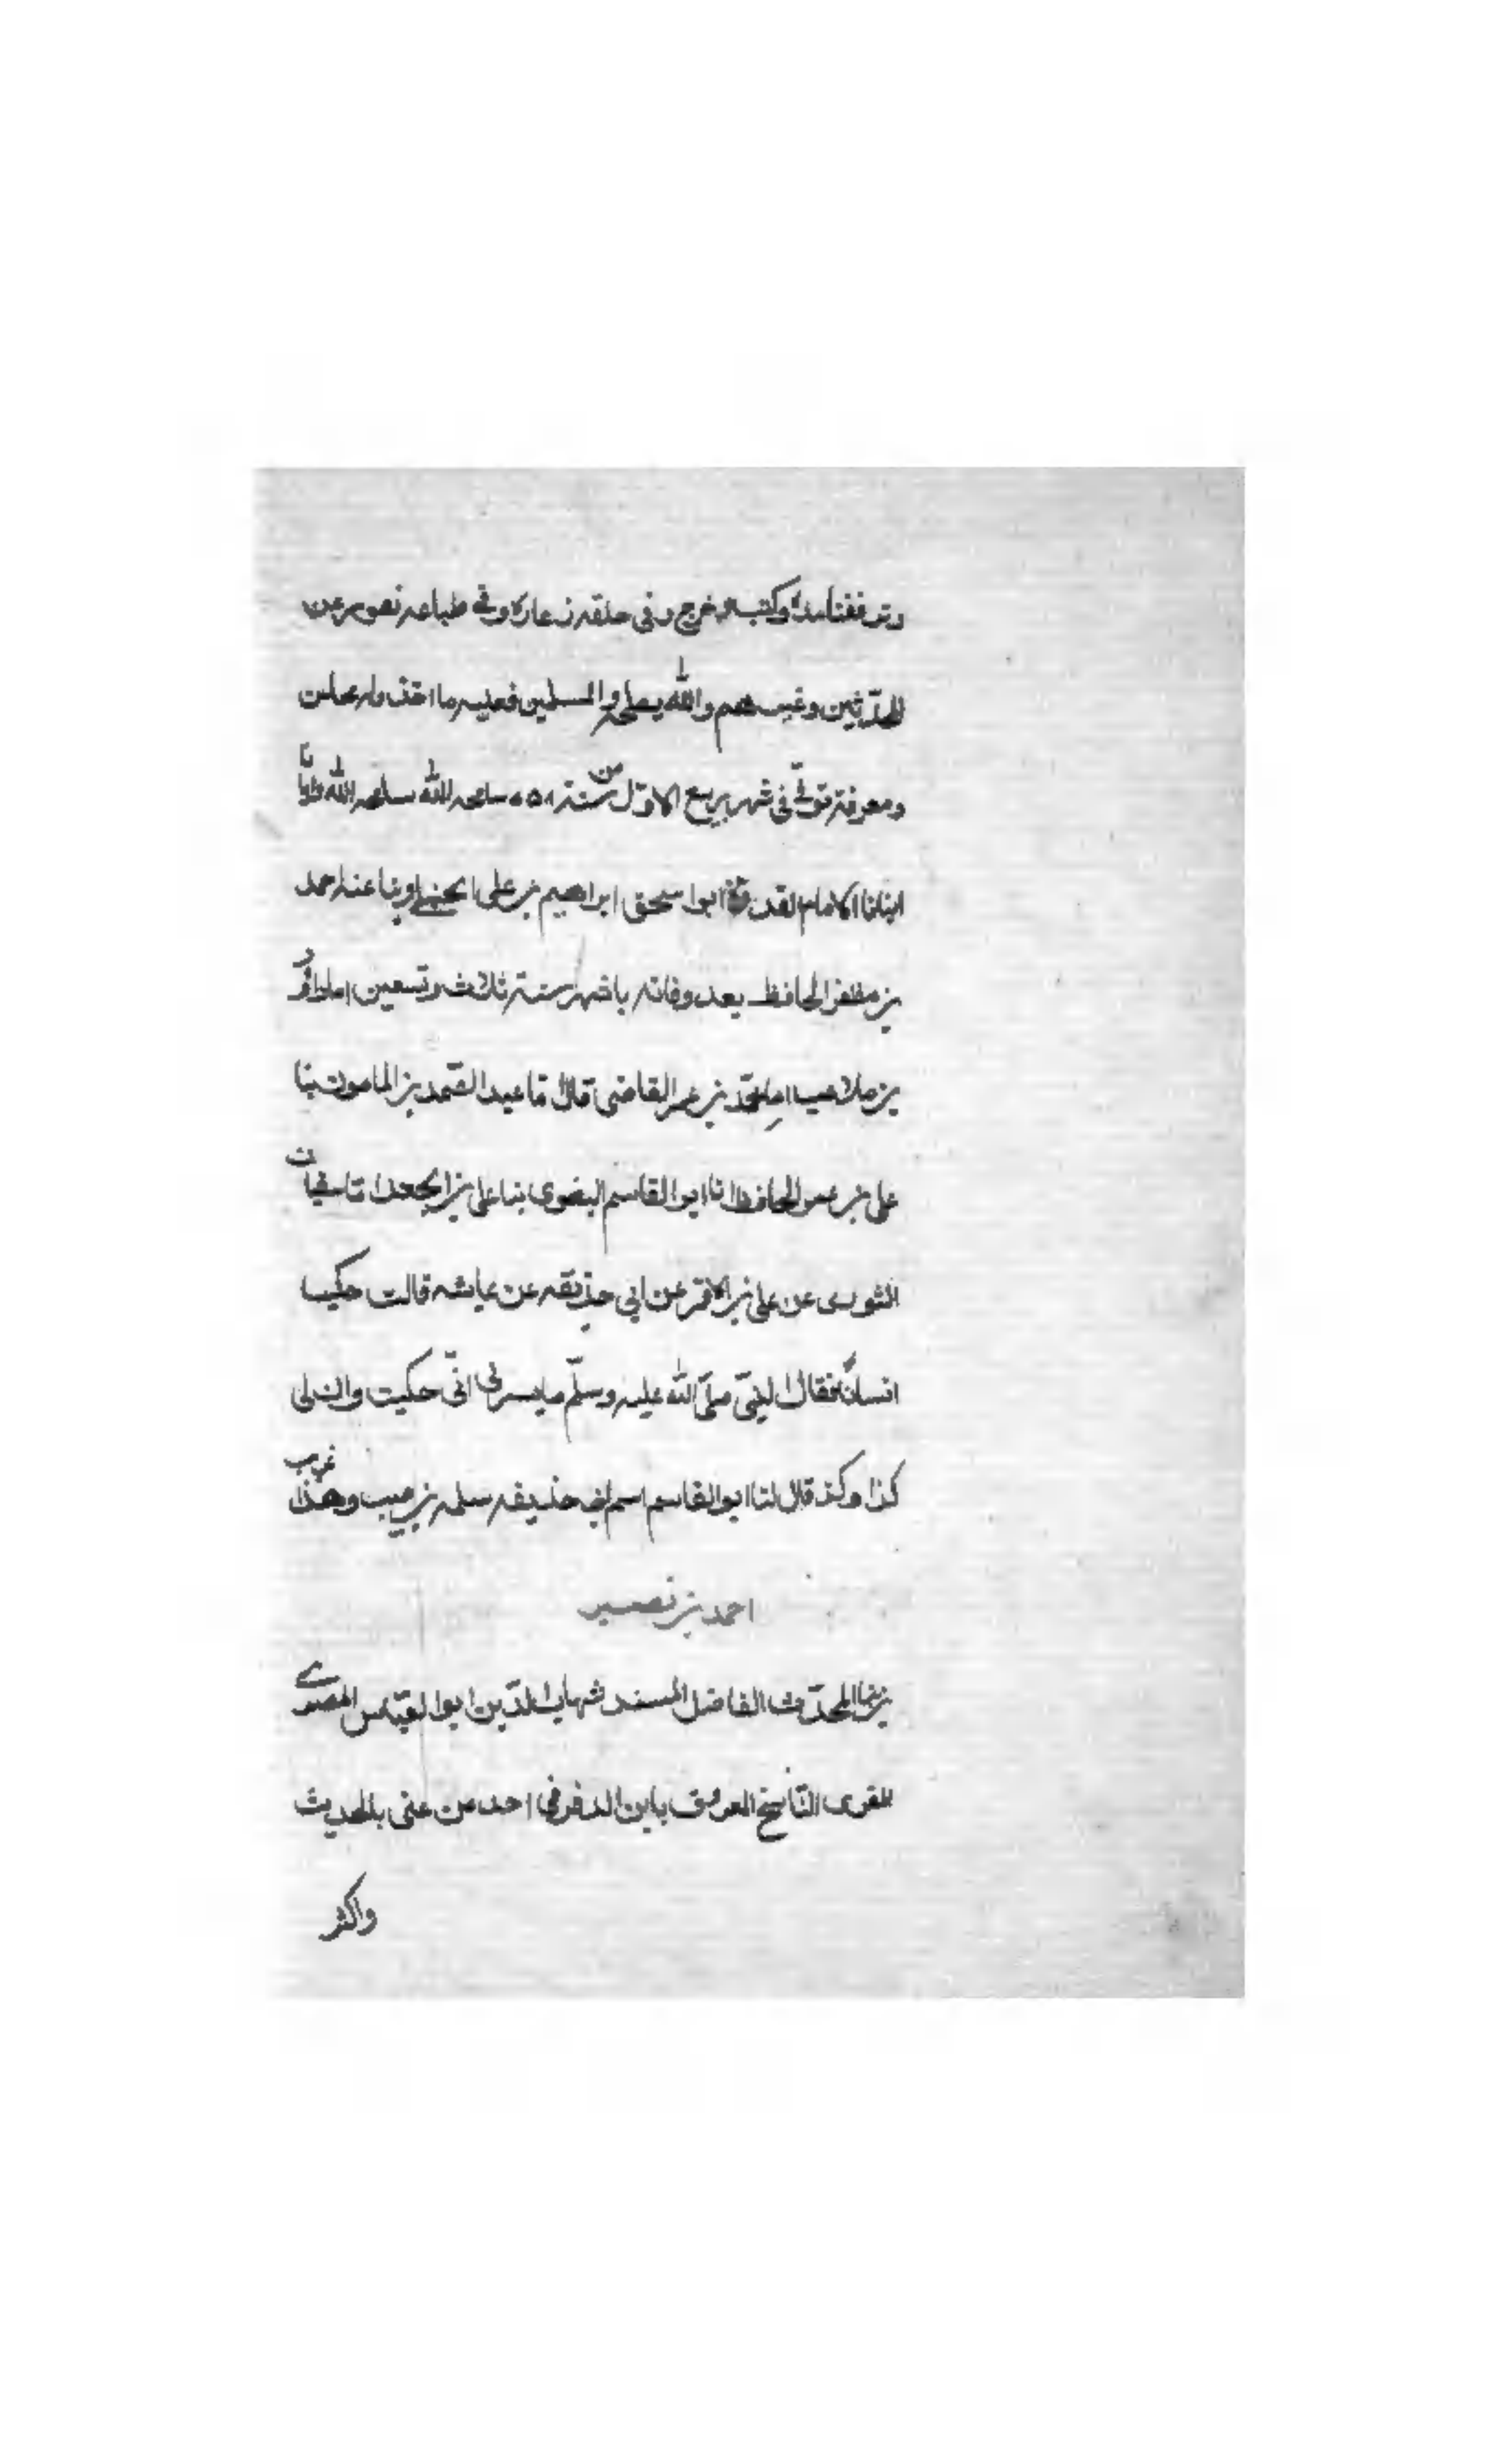 وتر فقنا مدة وكتب و خرج وفى حلقه زعاره وفى طباعه نصور عن
المحدّثين وغيرهم والله يصلحه والمسلمين فعليه ما اخذ وله محاسن
ومعرفة توفّى فى شهر ربيع الاوّل من سنة ٧٥٨ سامحه الله
انبانا الامام القدوة ابوا سحق ابراهيم بن على وبنا عنه احمد
بن مظفر الحافظ بعد وفاته باشهر سنة ثلاث وتسعين
بن ملاعب محمّد بن عمر القاضى قال عبد الصّمد بن المامون بنا
على بن عمر الحافظ انا ابوا القاسم البغوى بنا على بن الجعد سفيان
الثورى عن على بن الاقمر عن ابى حذيفه عن عايشه قالت حكيت
انسانًا فقال النبىّ صلّى الله عليه وسلّم ما يسرنى انّى حكيت وان لى
كذا وكذ قال لنا ابوا القاسم اسم ابى حذيفه سلمه بن صهيب وهذا غريب
احمد بن نصير
بن نبا المحدّث الفاضل المسند شهاب الدّين ابوا العبّاس المصرى
المقرى النّاسخ المعروف بابن الدفوفى احد من عنى بالحديث
واكثر